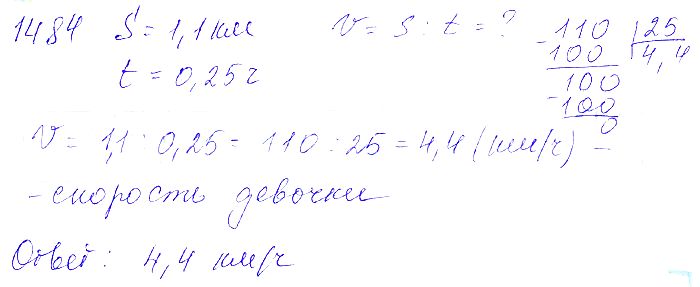 1484 S = 1,1 км V = S : t = ?
t = 0,25 ч
110 25
100 4,4
100
100
0
V = 1,1 : 0,25 = 110 : 25 = 4,4 (км/ч) –
– скорость девочки
Ответ: 4,4 км/ч